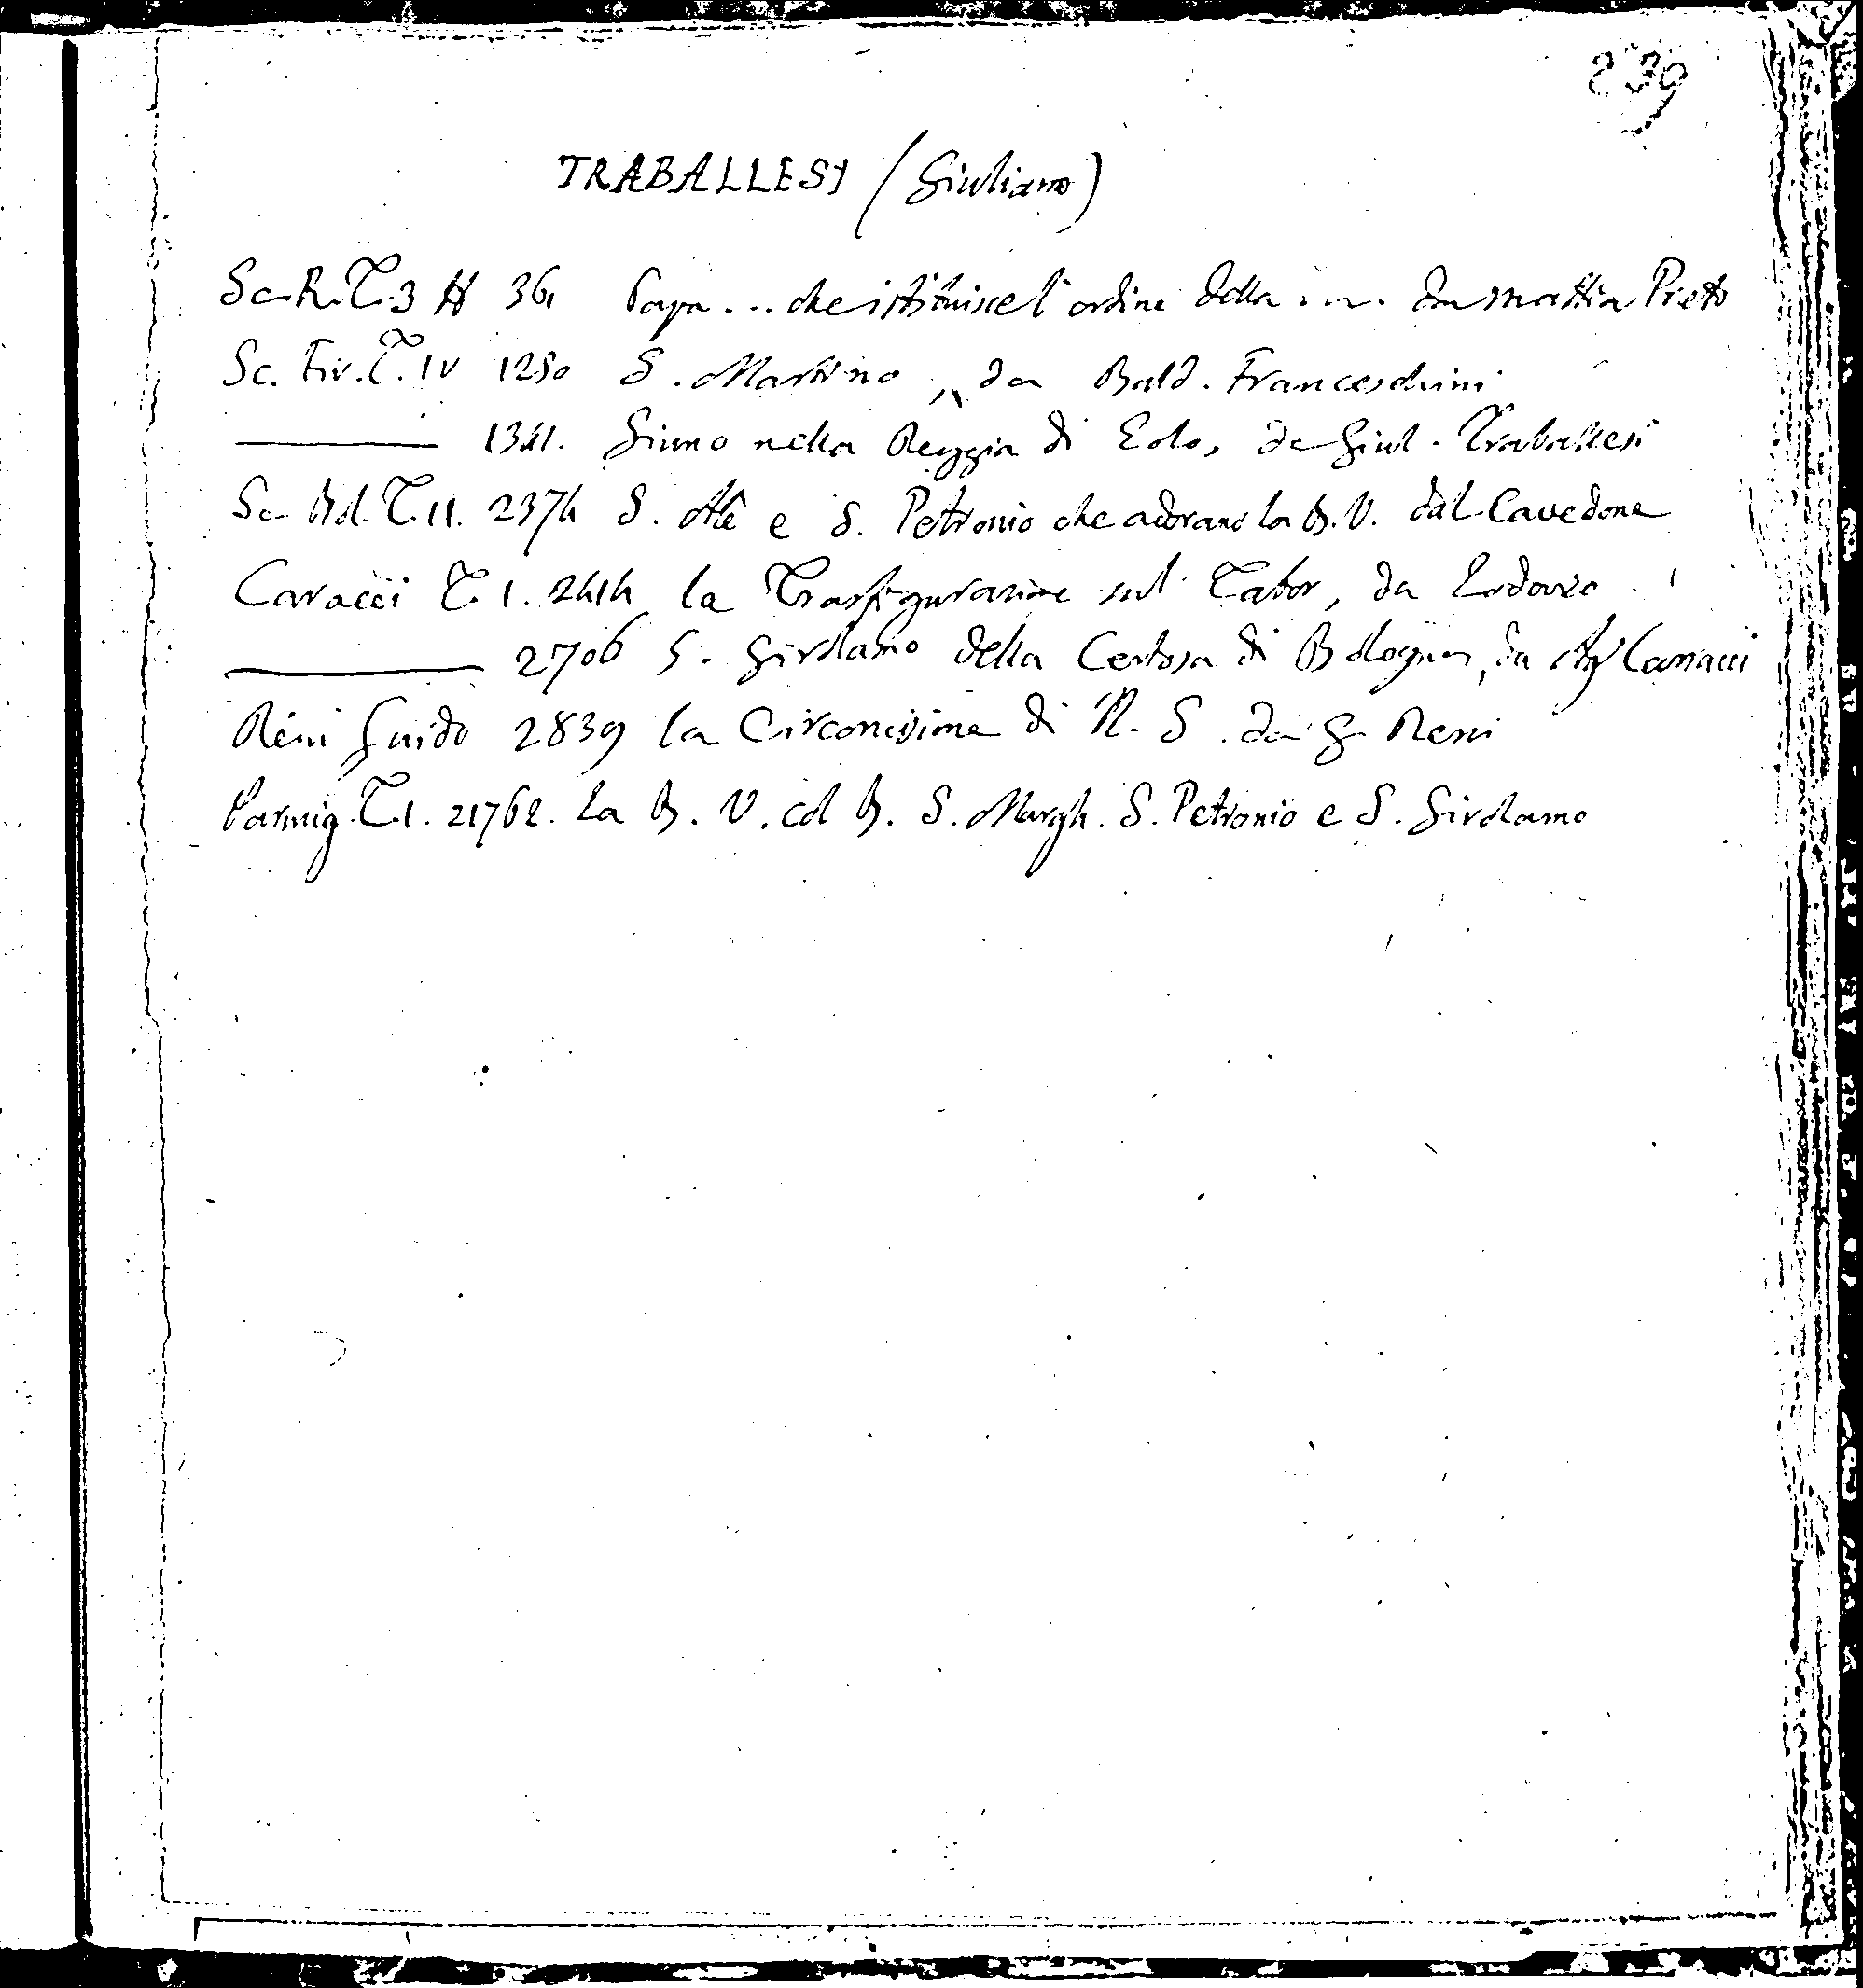 239
TRABALLESJ (Giuliano)
Sc. R. T. 3 # 361 Papa ... che istituisce l'ordine della ... da Mattia Preto
Sc. Fir. T. IV 1250 S. Martino, da Bald. Franceschini
1341. Giuno nella Reggia di Eolo, da Giul. Traballesi
Sc. Bol. T. II. 2374 S. Alò e S. Petronio che adorano la B. V. dal Cavedone
Caracci T. 1. 2414 la Trasfigurazione sul Tabor, da Lodovico
2706 S. Girolamo della Certosa di Bologna, da Ag Carracci
Reni Guido 2839 la Circoncisione di N. S. da G Reni
Parmig. T. 1. 21762. La B. V. col B. S. Margh. S. Petronio e S. Girolamo